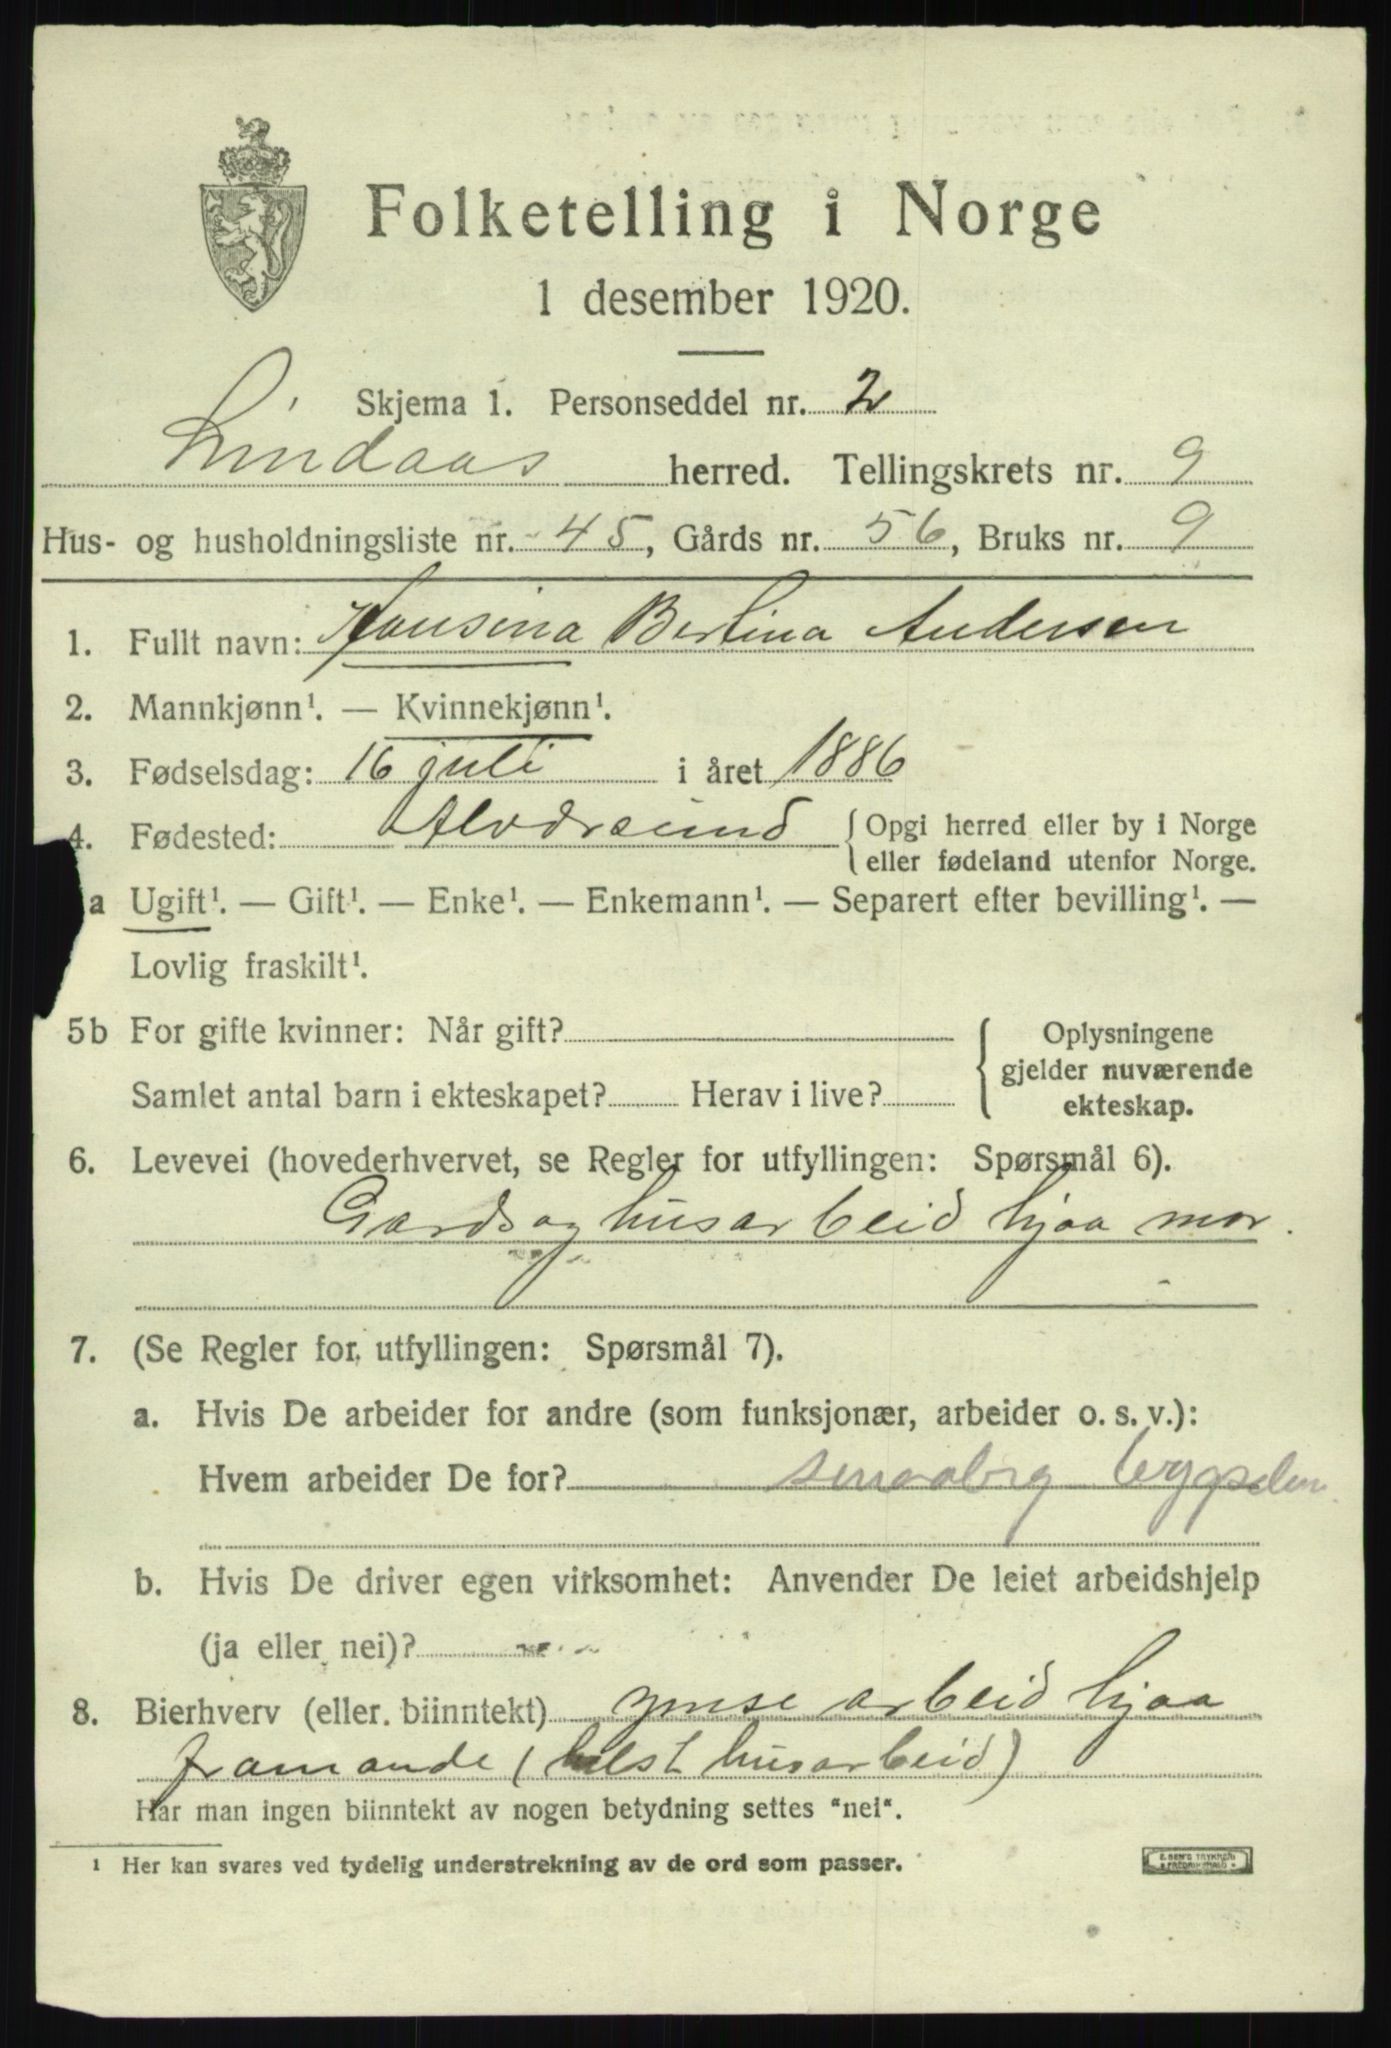 Folketelling i Norge
1 desember 1920.
Skjema 1. Personseddel nr. 2
Lindaas herred. Tellingskrets nr. 9
Hus- og husholdningsliste nr. 45, Gårds nr. 56, Bruks nr. 9
1. Fullt navn: Hansina Bertina Andersen
2. Mannkjønn¹. — Kvinnekjønn¹.
3. Fødselsdag: 16 juli i året 1886
4. Fødested: Alversund { Opgi herred eller by i Norge
eller fødeland utenfor Norge.
a Ugift¹. — Gift¹. — Enke¹. — Enkemann¹. — Separert efter bevilling¹. —
Lovlig fraskilt¹.
5b For gifte kvinner: Når gift? { Oplysningene
gjelder nuværende
Samlet antal barn i ekteskapet? Herav i live? ekteskap.
6. Levevei (hovederhvervet, se Regler for utfyllingen: Spørsmål 6).
Gards og husarbeid hjaa mor.
7. (Se Regler for utfyllingen: Spørsmål 7).
a. Hvis De arbeider for andre (som funksjonær, arbeider o. s. v.):
Hvem arbeider De for? smaabrg bygselm.
b. Hvis De driver egen virksomhet: Anvender De leiet arbeidshjelp
(ja eller nei)?
8. Bierhverv (eller biinntekt) ymse arbeid hjaa
framande (helst husarbeid)
Har man ingen biinntekt av nogen betydning settes "nei".
¹ Her kan svares ved tydelig understrekning av de ord som passer.